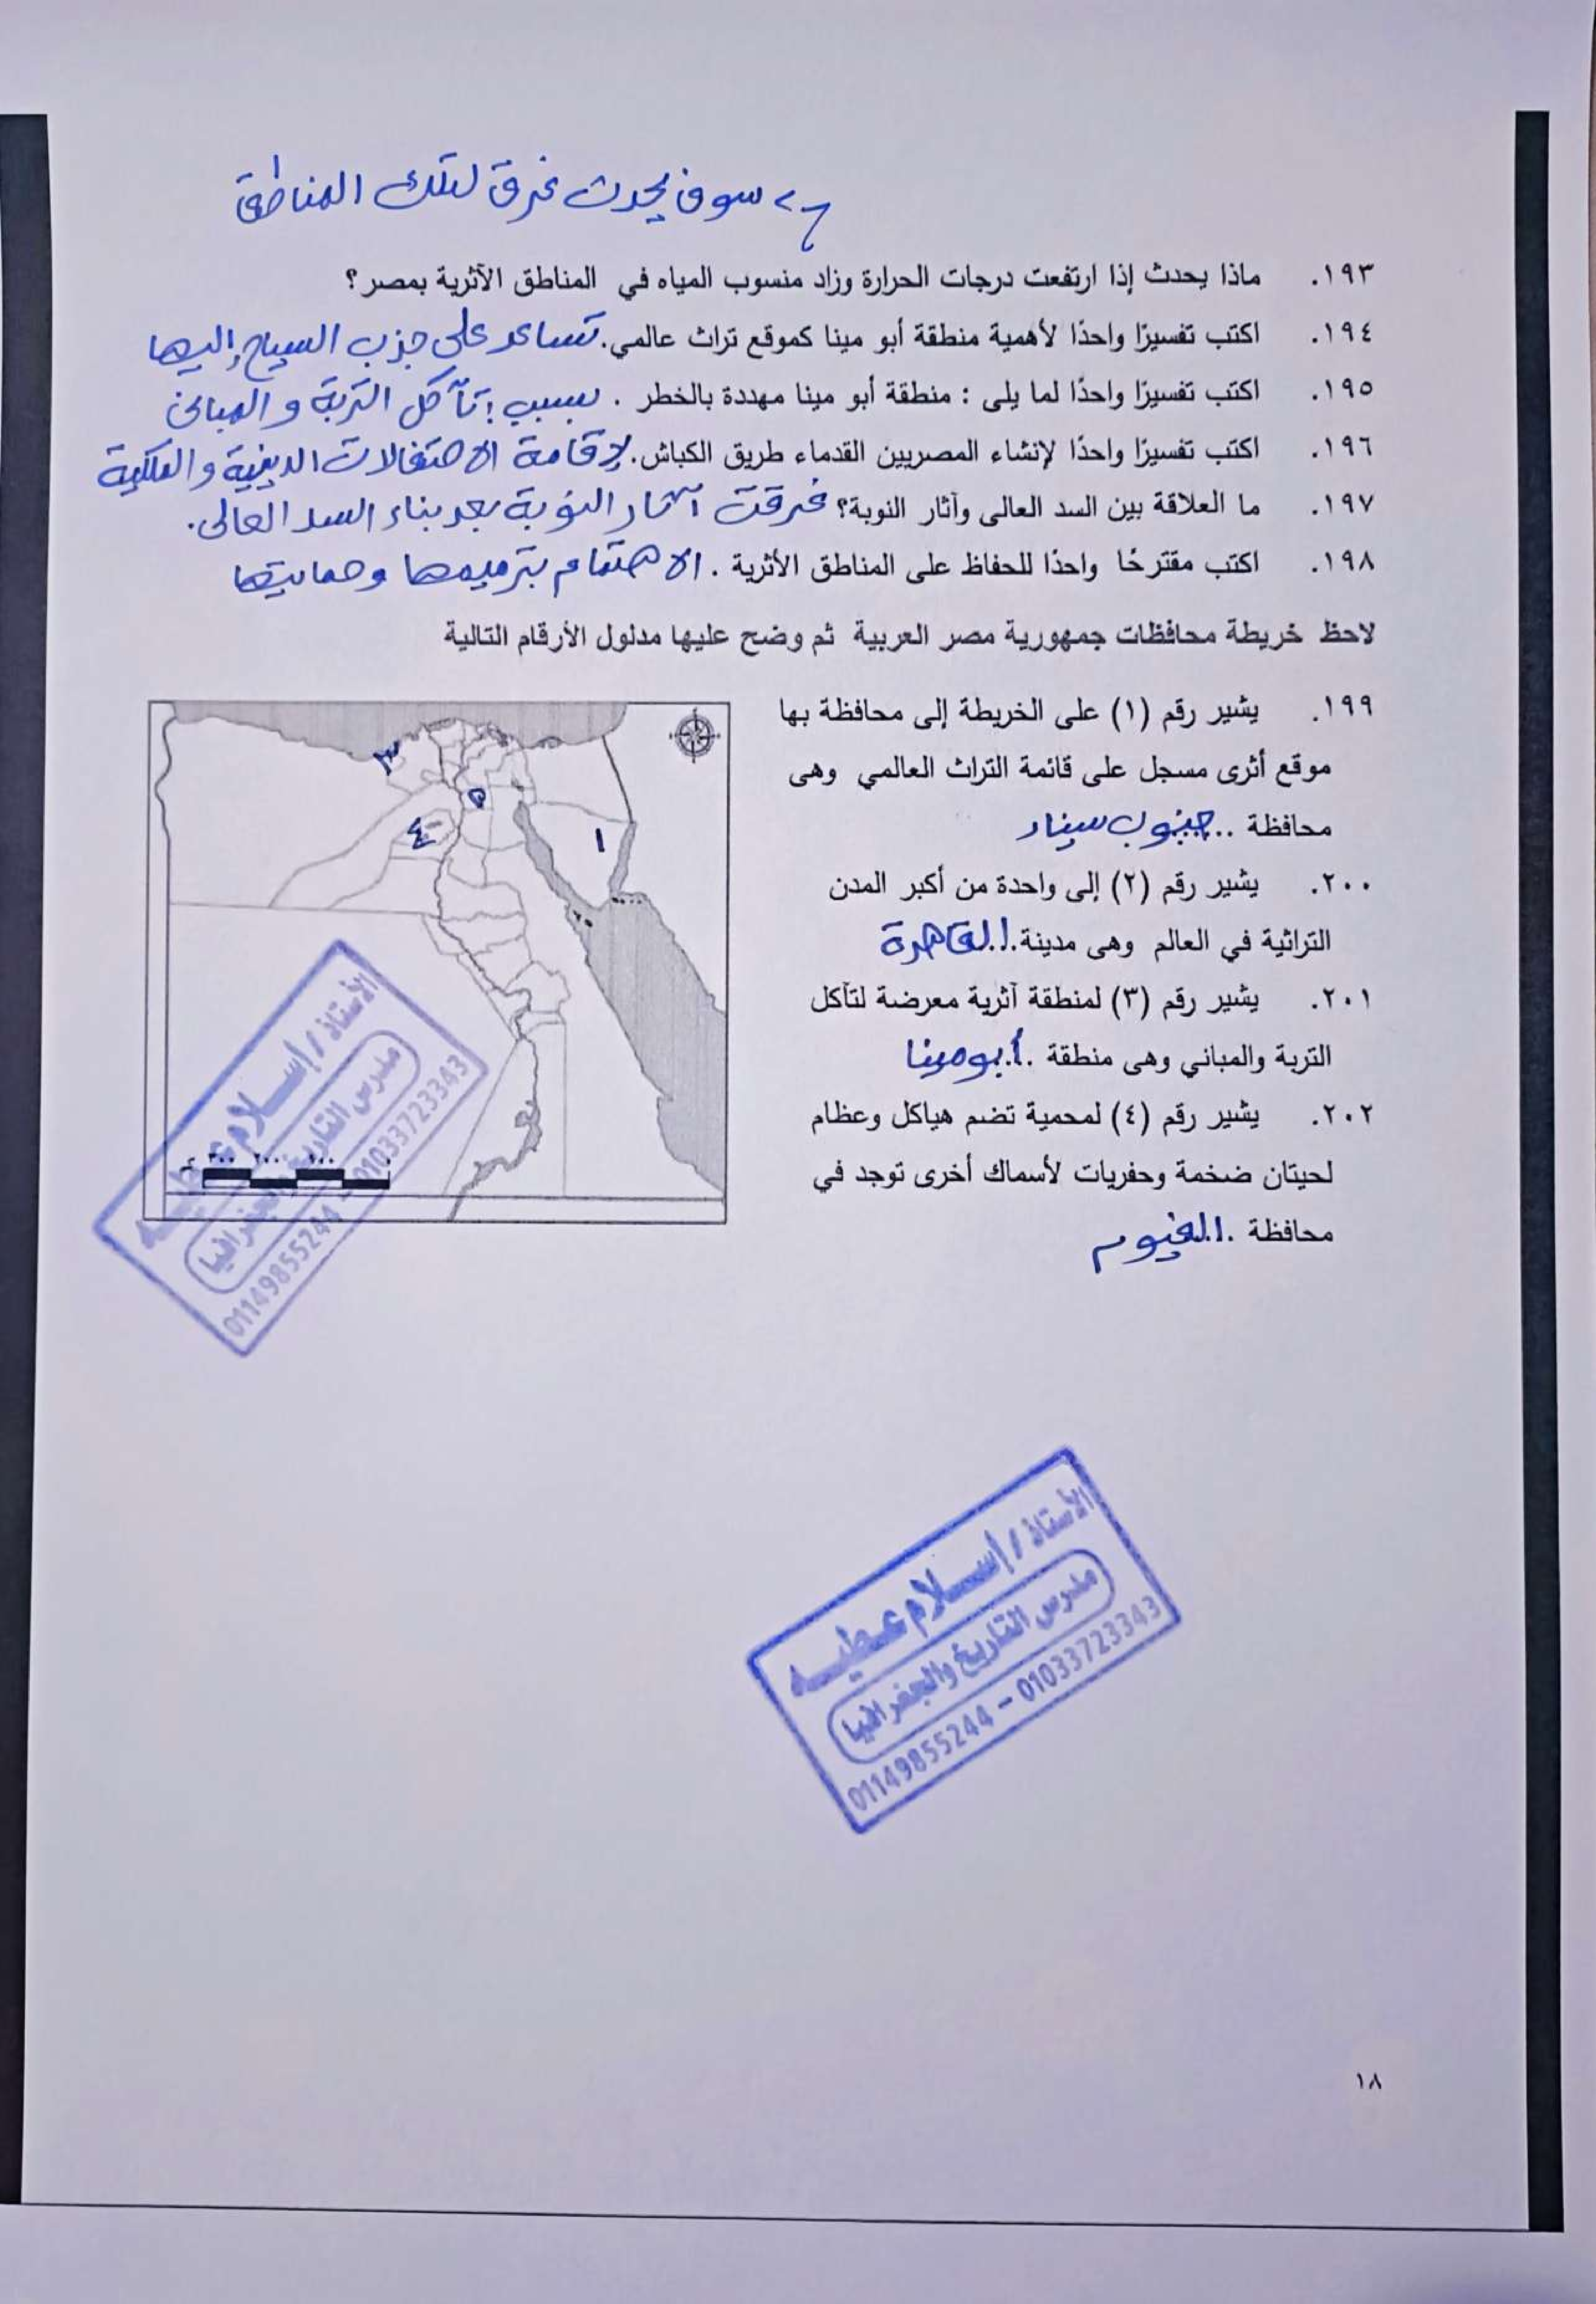 سوف يحدث غرق لتلك المناطق
١٩٣. ماذا يحدث إذا ارتفعت درجات الحرارة وزاد منسوب المياه في المناطق الآثرية بمصر؟
١٩٤. اكتب تفسيرًا واحدًا لأهمية منطقة أبو مينا كموقع تراث عالمي. تساعد على جذب السياح إليها
١٩٥. اكتب تفسيرًا واحدًا لما يلى : منطقة أبو مينا مهددة بالخطر . بسبب تآكل التربة و المبانى
١٩٦. اكتب تفسيرًا واحدًا لإنشاء المصريين القدماء طريق الكباش. لإقامة الاحتفالات الدينية و الملكية
١٩٧. ما العلاقة بين السد العالى وآثار النوبة؟ غرقت آثار النوبة بعد بناء السد العالى.
١٩٨. اكتب مقترحًا واحدًا للحفاظ على المناطق الأثرية . الاهتمام بترميمها وحمايتها
لاحظ خريطة محافظات جمهورية مصر العربية ثم وضح عليها مدلول الأرقام التالية
١٩٩. يشير رقم (١) على الخريطة إلى محافظة بها
موقع أثرى مسجل على قائمة التراث العالمي وهى
محافظة .. جنوب سيناء
٢٠٠. يشير رقم (٢) إلى واحدة من أكبر المدن
التراثية في العالم وهى مدينة.. القاهرة
٢٠١. يشير رقم (٣) لمنطقة آثرية معرضة لتآكل
التربة والمباني وهى منطقة .. أبو مينا
٢٠٢. يشير رقم (٤) لمحمية تضم هياكل وعظام
لحيتان ضخمة وحفريات لأسماك أخرى توجد في
محافظة .. الفيوم
٣
٥
٤
١
الأستاذ / إسلام عطيه
مدرس التاريخ والجغرافيا
01149855244 - 01033723343
الأستاذ / إسلام عطيه
مدرس التاريخ والجغرافيا
01149855244 - 01033723343
١٨